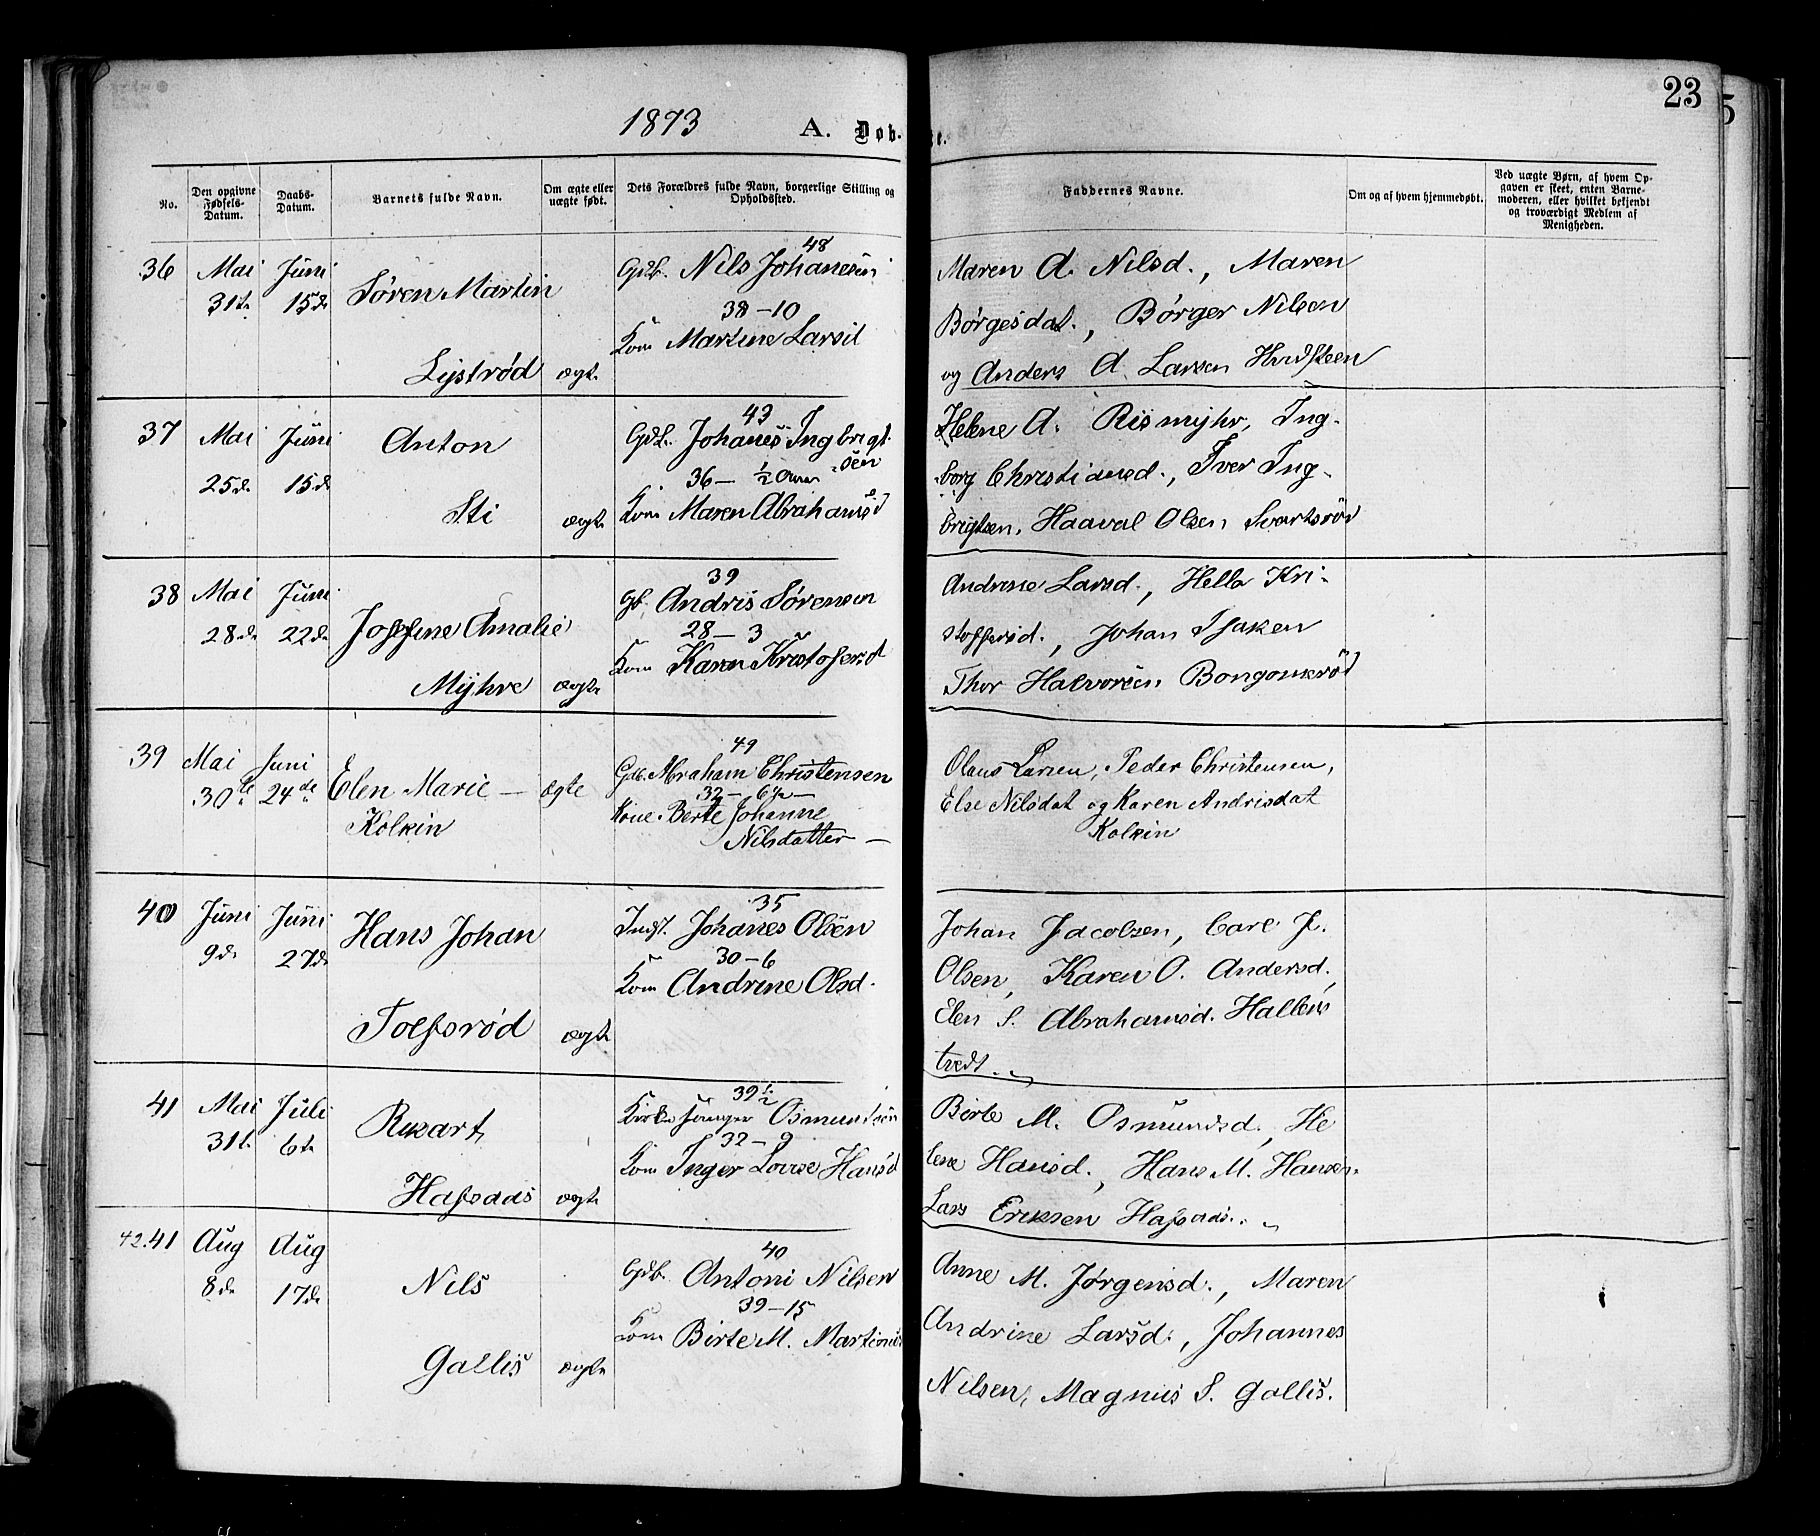 23
1873 A. Døb-
te.
No.
Den opgivne Fødsels-Datum.
Daabs-Datum.
Barnets fulde Navn.
Om ægte eller uægte født.
Dets Forældres fulde Navn, borgerlige Stilling og Opholdssted.
Faddernes Navne.
Om og af hvem hjemmedøbt.
Ved uægte Børn, af hvem Opgaven er skeet, enten Barnemoderen, eller hvilket bekjendt og troværdigt Medlem af Menigheden.
36 Mai 31te Juni 15de Søren Martin
Lystrød ægte
48
Gdb. Nils Johanesen
38–10
Kone Martine Larsd
Maren A. Nilsd., Maren
Børgesdat., Børger Nilsen
og Anders A. Larsen Hvidsteen
37 Mai 25de Juni 15de Anton
Sti ægte
43
Gdb. Johanes Ingbrigt-
sen
36– ½ Aar
Kone Maren Abrahamsd
Helene A. Rismyhr, Ing-
borg Christiansd., Iver Ing-
brigtsen, Haaval Olsen Svartsrød
38 Mai 28de Juni 22de Josefine Amalie
Myhre ægte
39
Gb. Andris Sørensen
28–3
Kone Karen Kristofersd
Andrine Larsd., Hella Kri-
stoffersd., Johan Isaksen
Thor Halvorsen Bongomsrød
39 Mai 30te Juni 24de Elen Marie – ægte
Kolkin
49
Gdb. Abraham Christensen
32–6
Kone. Berte Johanne
Nilsdatter –
Olaus Larsen, Peder Christensen,
Else Nilsdat og Karen Andrisdat
Kolkin
40 Juni 9de Juni 27de Hans Johan
Tolfsrød ægte
35
Indst. Johanes Olsen
30–6
Kone Andrine Olsd.
Johan Jacobsen, Carl J.
Olsen, Karen O. Andersd.,
Elen S. Abrahamsd. Hallens
tvedt.
41 Mai 31te Juli 6te Rikart
Hafsaas ægte
39½
Kirkesanger Osmundsen
32–9
Kone Inger Lovise Hansd
Birte M. Osmundsd., He
lene Hansd., Hans M. Hansen.
Lars Eriksen Hafsaas.
42. 41 Aug 8de Aug 17de Nils
Gallis ægte
40
Gdb. Antoni Nilsen
39–15
Kone Birte M. Martinus
Anne M. Jørgensd., Maren
Andrine Larsd., Johannes
Nilsen, Magnus S. Gallis.